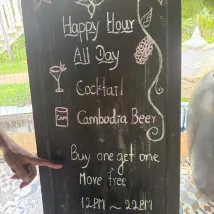 Happy Hour
All Day
Cocktail
Cambodra Beer
Buy one get one
More free
12PM ~ 22PM